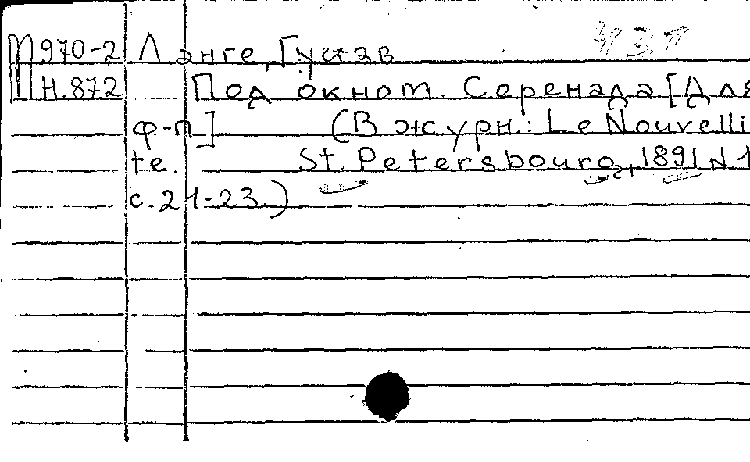 М970-2 Ланге, Густав
Н.872 Под окном. Серенада [Для
ф-п] (В журн.: Le Nouvelli
te. St. Petersbourg, 1891 N1
с. 21-23.)